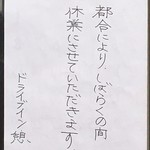 都合により、しばらくの間
休業にさせていただきます
ドライブイン 憩